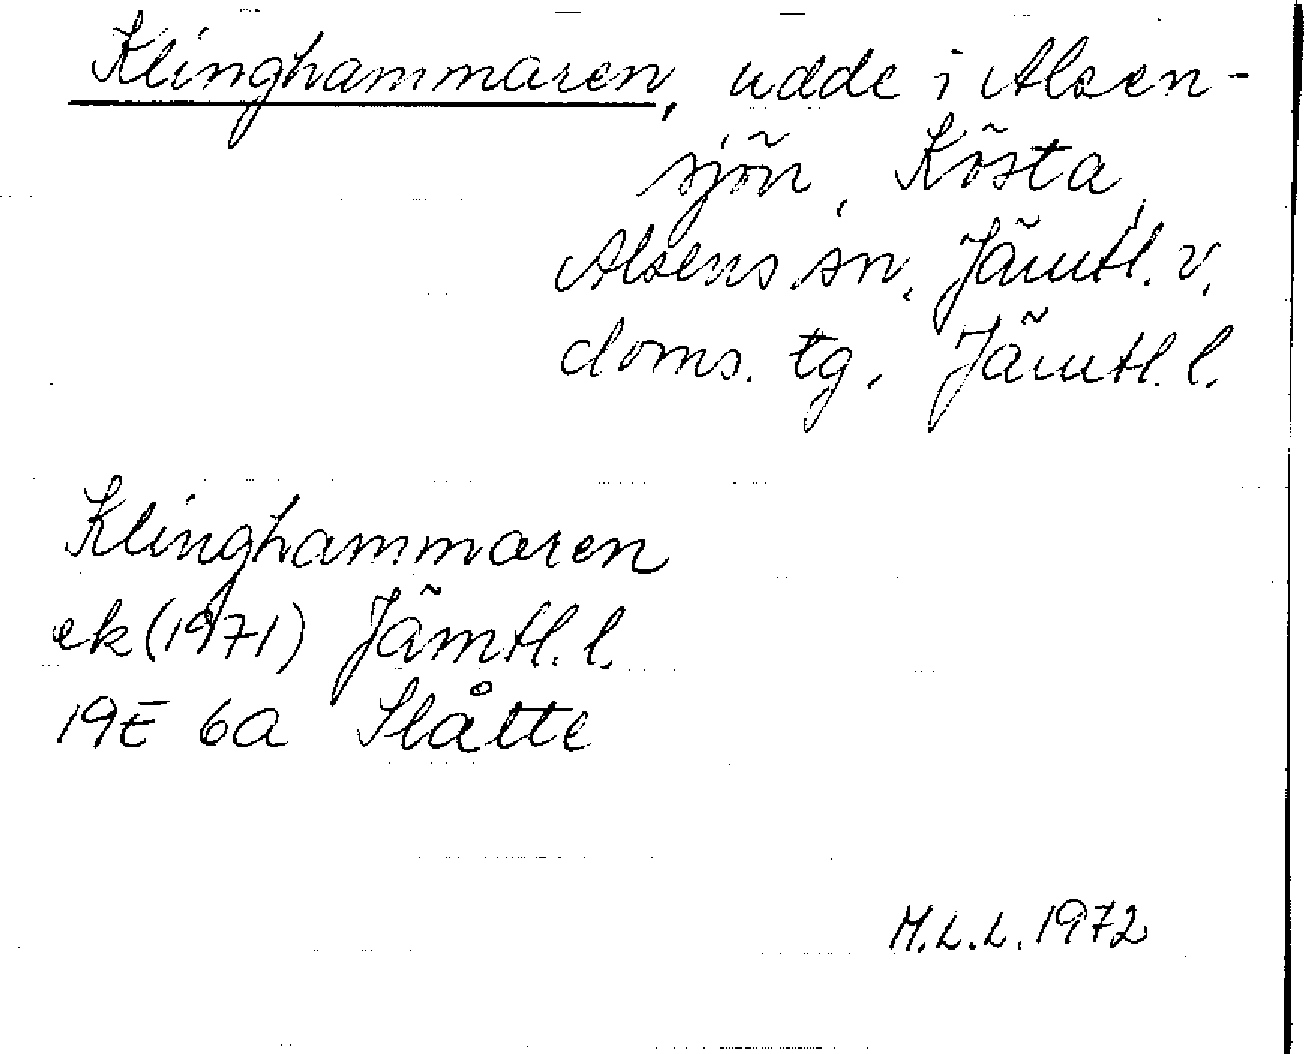 Klinghammaren, udde i Alsen-
sjön, Kösta,
Alsens sn, Jämtl. v.
doms. tg, Jämtl. l.
Klinghammaren
ek (1971) Jämtl. l.
19E 6a Slåtte
M.L.L. 1972